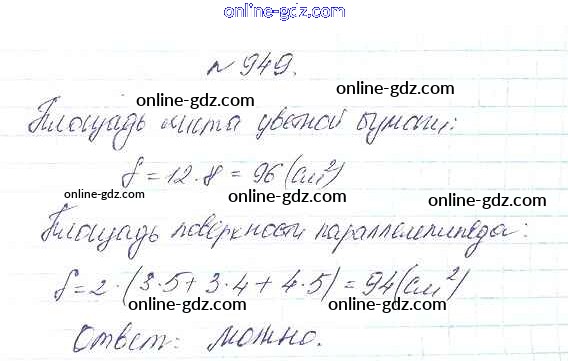 online-gdz.com
№ 949.
online-gdz.com
online-gdz.com online-gdz.com
Площадь листа цветной бумаги:
S = 12 · 8 = 96 (см²)
online-gdz.com online-gdz.com
Площадь поверхности параллелепипеда:
online-gdz.com
S = 2 · (3·5 + 3·4 + 4·5) = 94 (см²)
online-gdz.com online-gdz.com
Ответ: можно.
online-gdz.com